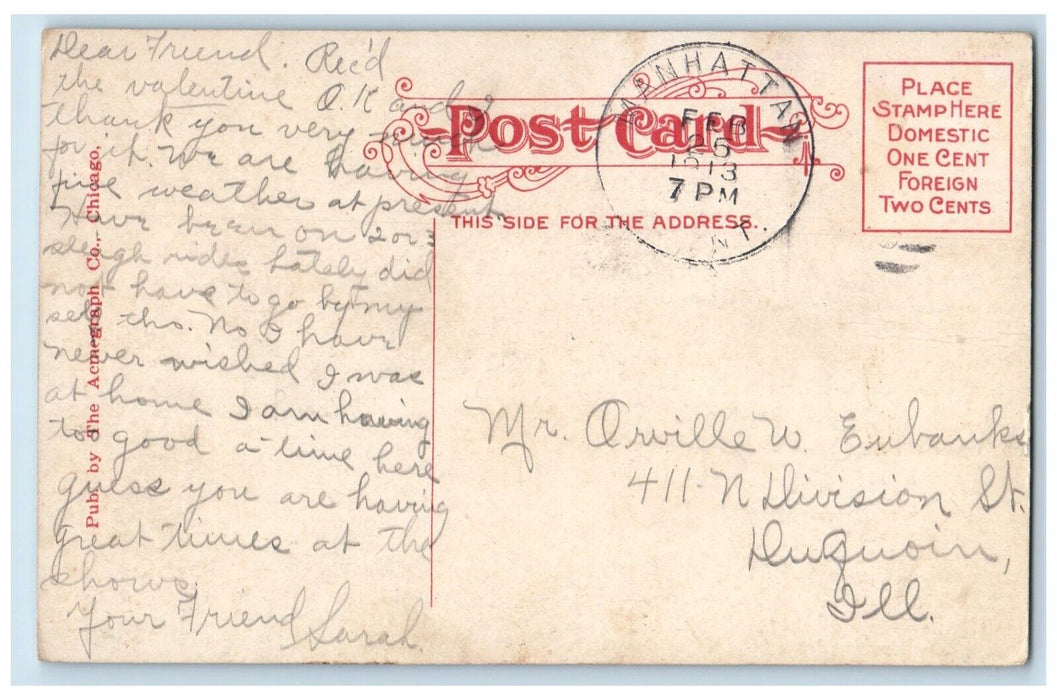 Dear Friend. Rec'd
the valentine O.K and I
thank you very much
for it. We are having
fine weather at present.
Have been on 2 or 3
sleigh rides lately did
not have to go by my
self tho. No I have
never wished I was
at home I am having
to good a time here
guess you are having
great times at the
shows.
Your Friend Sarah
Pub. by The Acmegraph Co., Chicago.
Post Card
THIS SIDE FOR THE ADDRESS.
MANHATTAN
FEB
25
1913
7 PM
MONT
PLACE
STAMP HERE
DOMESTIC
ONE CENT
FOREIGN
TWO CENTS
Mr. Orville W Eubanks
411-N Division St.
DuQuoin,
Ill.